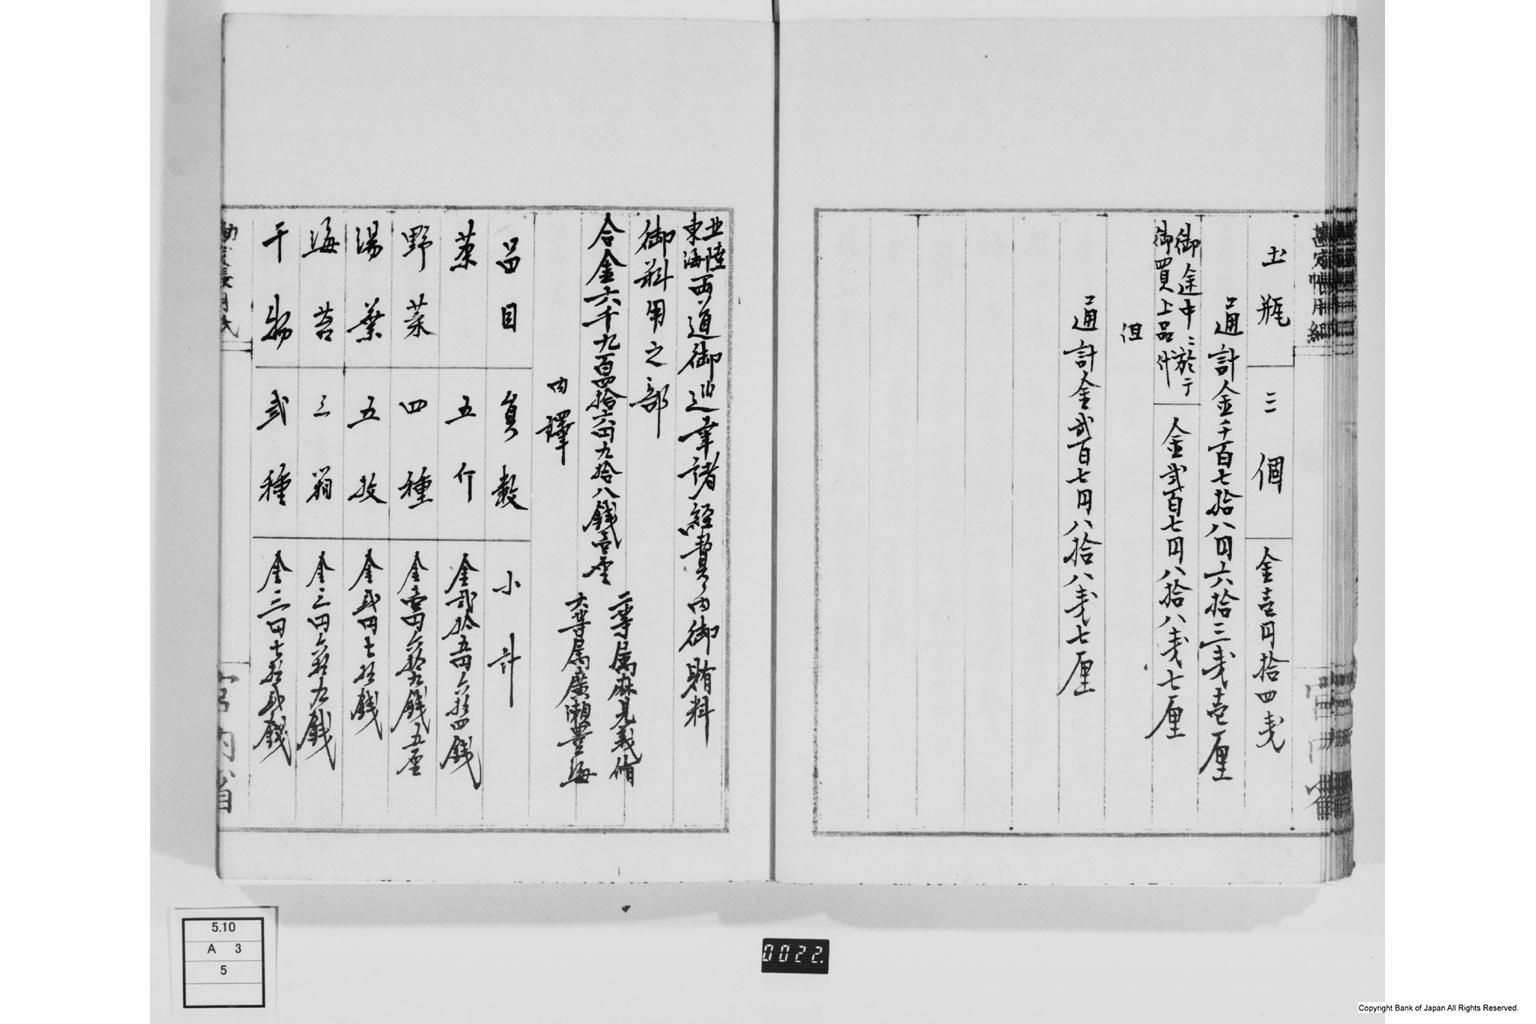 土瓶 三個 金壱円拾四銭
通計金千百七拾八円六拾三銭壱厘
御途中ニ於テ
御買上品代
金弐百七円八拾八銭七厘
但
通計金弐百七円八拾八銭七厘
北陸
東海
両道御巡幸諸経費内御賄料
御料用之部
合金六千九百四拾六円九拾八銭壱厘
二等属麻見義脩
六等属廣瀬豊海
内譯
品目 員数 小計
茶 五斤 金弐拾五円六拾四銭
野菜 四種 金壱円六拾九銭五厘
湯葉 五枚 金弐円七拾銭
海苔 三箱 金三円六拾九銭
干物 弐種 金三円七拾弐銭
宮内省
5.10
A 3
5
0022.
Copyright Bank of Japan All Rights Reserved.